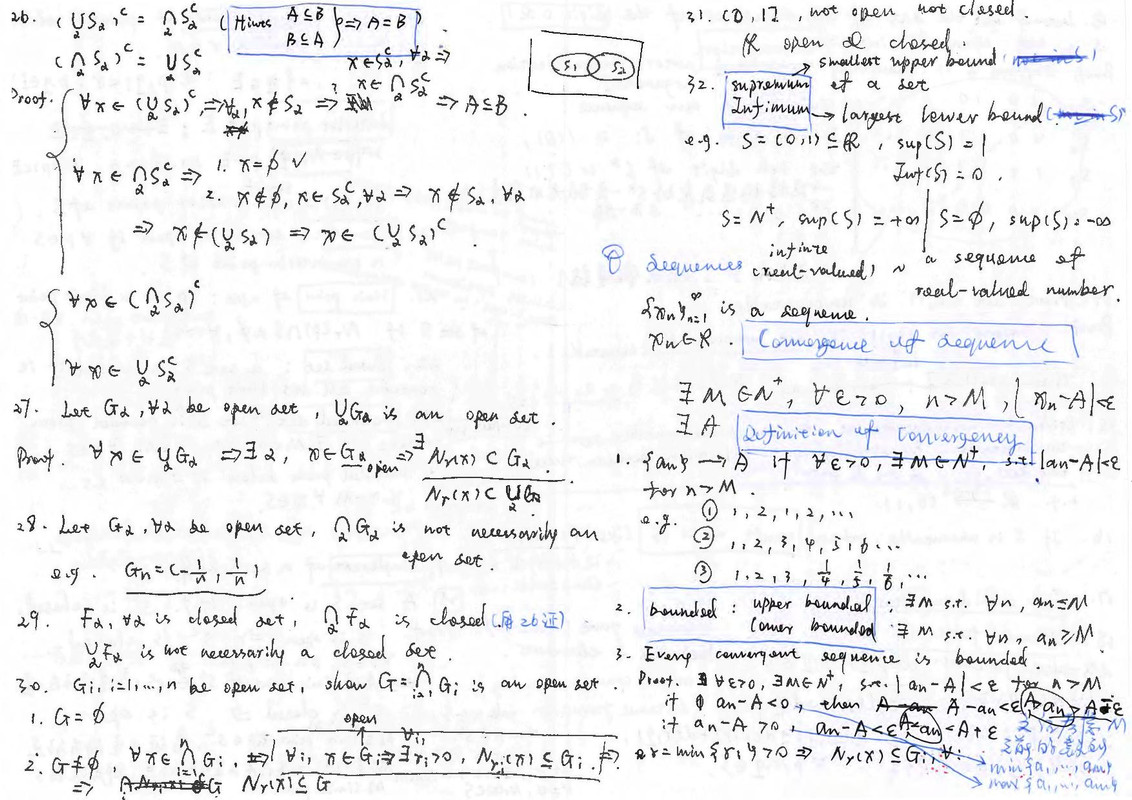 26. (∪_α S_α)^c = ∩_α S_α^c (Hint: A⊆B B⊆A ⇒ A=B)
(∩_α S_α)^c = ∪_α S_α^c
x∈S_α^c, ∀α ⇒
x∈∩_α S_α^c
S₁ S₂
Proof. ∀x∈(∪_α S_α)^c ⇒ ∀α, x∉S_α ⇒ ⇒ A⊆B.
∀x∈∩_α S_α^c ⇒ 1. x=∅ ✓
2. x≠∅, x∈S_α^c, ∀α ⇒ x∉S_α, ∀α
⇒ x∉(∪_α S_α) ⇒ x∈(∪_α S_α)^c.
∀x∈(∩_α S_α)^c
∀x∈∪_α S_α^c
27. Let G_α, ∀α be open set, ∪_α G_α is an open set.
Proof. ∀x∈∪_α G_α ⇒ ∃α, x∈G_α ⇒ ∃ N_r(x)⊂G_α
open
N_r(x)⊂∪_α G_α
28. Let G_α, ∀α be open set, ∩_α G_α is not necessarily an
open set.
e.g. G_n=(-1/n, 1/n)
29. F_α, ∀α is closed set, ∩_α F_α is closed.(用26证)
∪_α F_α is not necessarily a closed set.
30. G_i, i=1,...,n be open set, show G=∩_{i=1}^n G_i is an open set.
1. G=∅
open
2. G≠∅ ∀x∈∩_{i=1}^n G_i, ⇒ ∀i, x∈G_i ⇒ ∃r_i>0, ∀i, N_{r_i}(x)⊆G_i, ⇒
⇒ N_r(x)⊆G
31. (0,1], not open not closed
ℝ open & closed
32. supremum → smallest upper bound
of a set
Infimum → largest lower bound
e.g. S=(0,1)⊆ℝ, sup(S)=1
Inf(S)=0.
S=N⁺, sup(S)=+∞ | S=∅, sup(S)=-∞
Sequences infinite (real-valued) ~ a sequence of
real-valued number.
{x_n}_{n=1}^∞ is a sequence.
x_n∈ℝ Convergence of sequence
∃M∈N⁺, ∀ε>0, n>M, |x_n-A|<ε
∃A Definition of convergency
1. {an} → A if ∀ε>0, ∃M∈N⁺, s.t. |an-A|<ε
for n>M.
e.g. ① 1, 2, 1, 2, ...
② 1, 2, 3, 4, 5, 6 ...
③ 1, 2, 3, 1/4, 1/5, 1/6, ...
2. bounded: upper bounded: ∃M s.t. ∀n, an≤M
lower bounded ∃m s.t. ∀n, an≥M
3. Every convergent sequence is bounded.
Proof. ∀ε>0, ∃M∈N⁺, s.t. |an-A|<ε for n>M
if an-A<0, then A-an<ε, an>A-ε
if an-A>0, an-A<ε an<A+ε
r=min{r_i}>0 ⇒ N_r(x)⊆G_i, ∀i
min{a₁,...,am}
max{a₁,...,am}